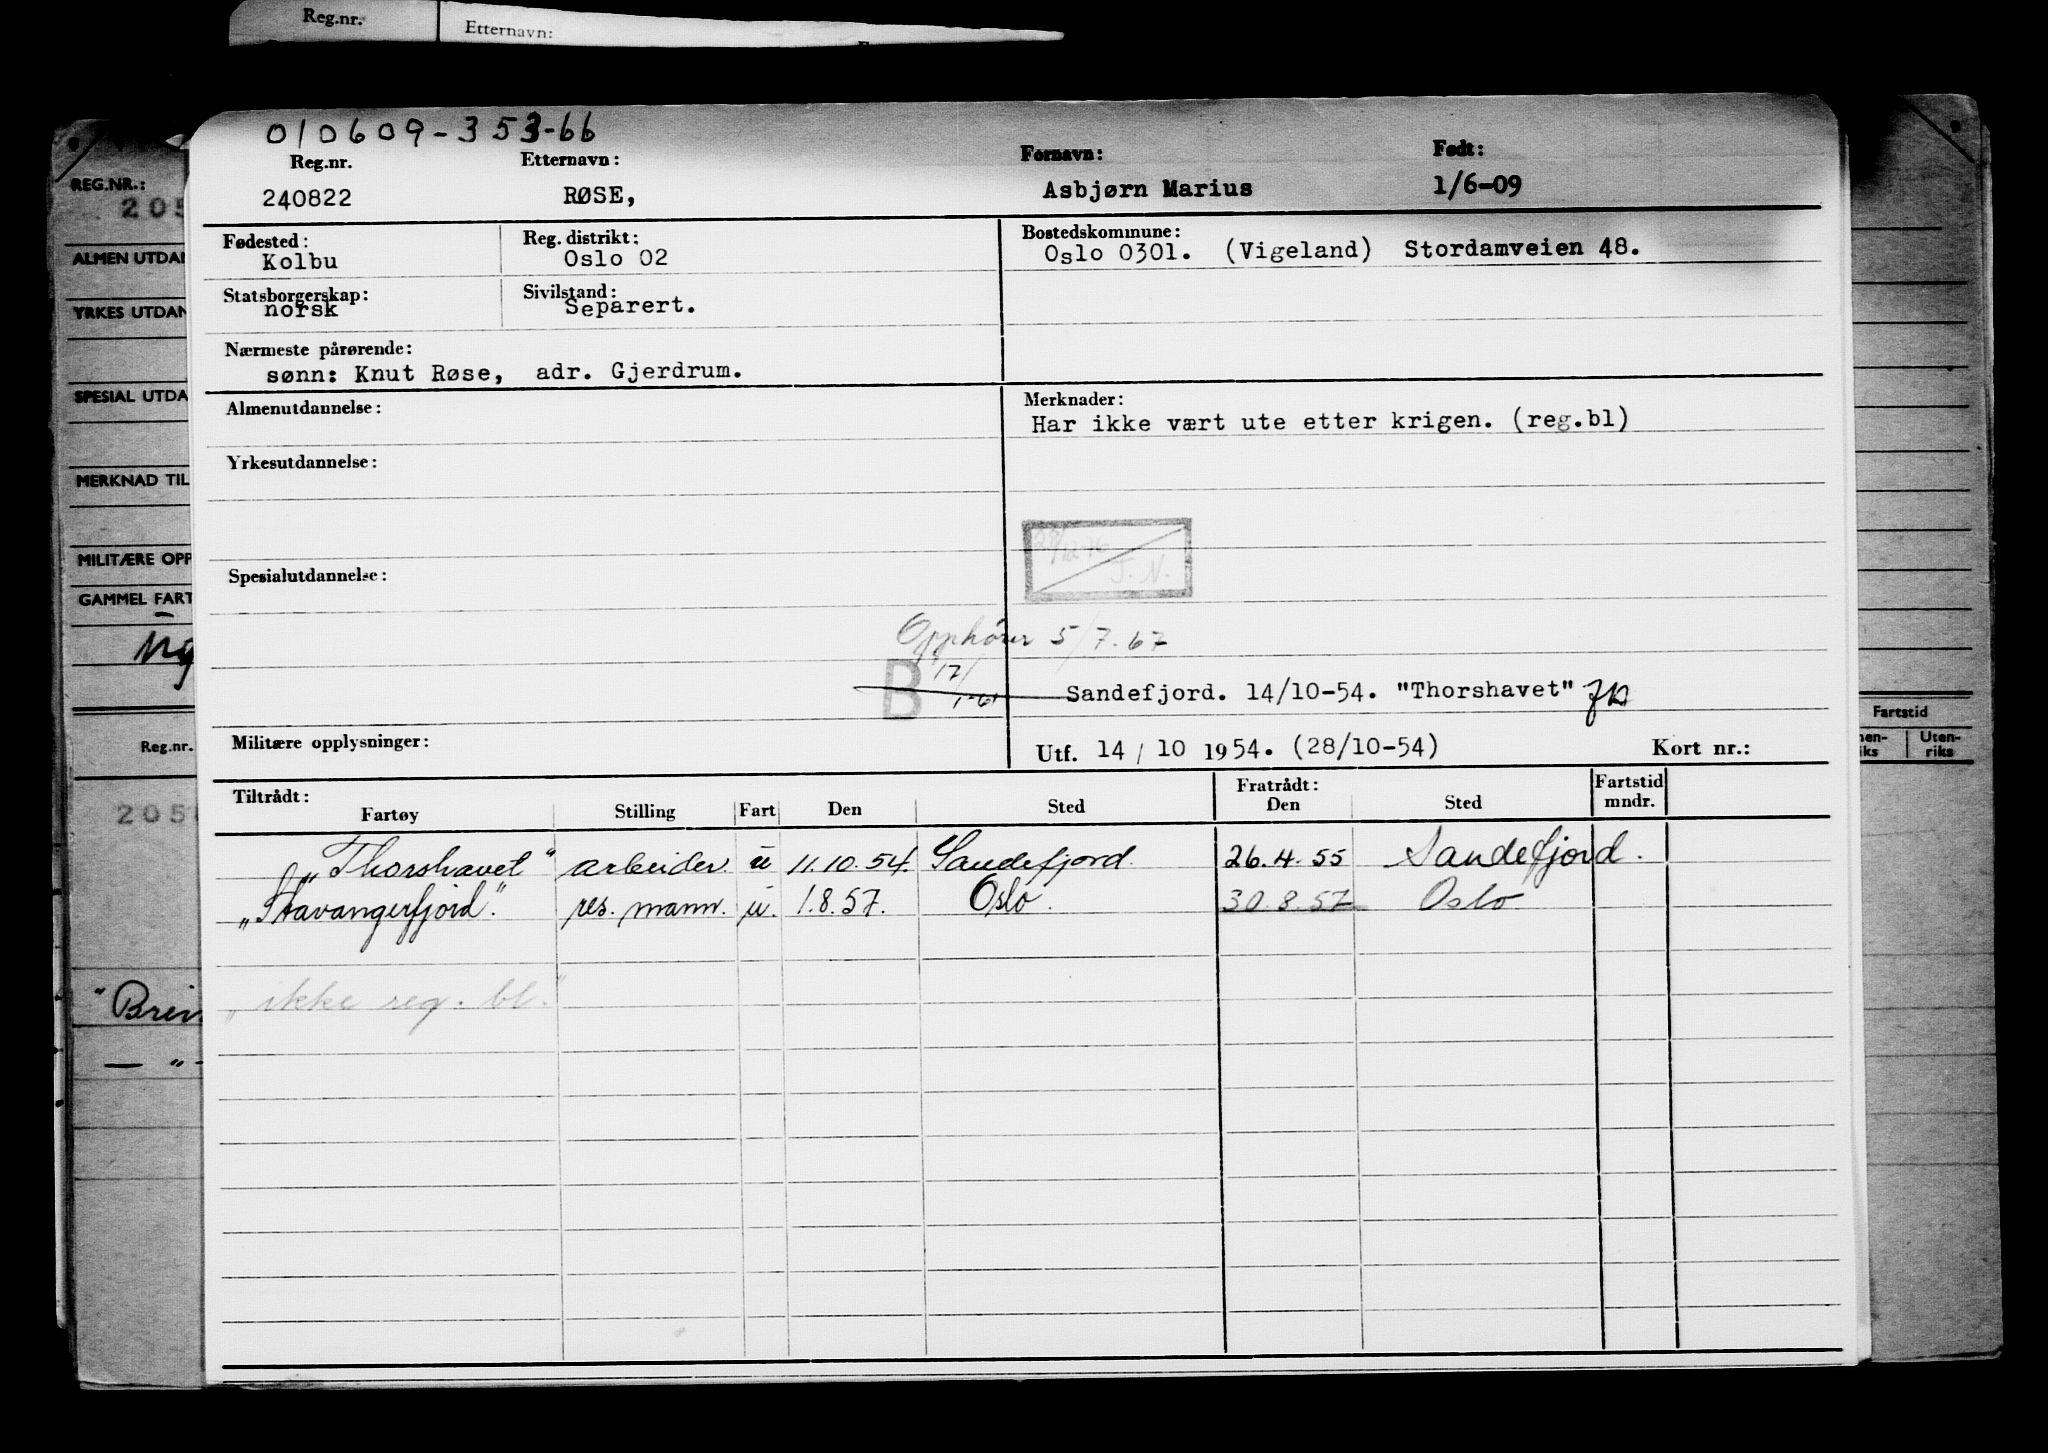 Reg.nr. Etternavn:
010609-353-66
Reg.nr. Etternavn: Fornavn: Født:
240822 RØSE, Asbjørn Marius 1/6-09
Fødested: Reg. distrikt: Bostedskommune:
Kolbu Oslo 02 Oslo 0301. (Vigeland) Stordamveien 48.
Statsborgerskap: Sivilstand:
norsk Separert.
Nærmeste pårørende:
sønn: Knut Røse, adr. Gjerdrum.
Almenutdannelse: Merknader:
Har ikke vært ute etter krigen. (reg.bl)
Yrkesutdannelse:
28/12-76
J. N.
Spesialutdannelse:
Opphører 5/7.67
B 12/
Sandefjord. 14/10-54. "Thorshavet"
Militære opplysninger: Utf. 14/10 1954. (28/10-54) Kort nr.:
Tiltrådt: Fratrådt: Fartstid
Fartøy Stilling Fart Den Sted Den Sted mndr.
"Thorshavet" arbeider. u 11.10.54. Sandefjord. 26.4.55 Sandefjord.
"Stavangerfjord". res. mann. u. 1.8.57. Oslo. 30.8.57 Oslo
"ikke reg. bl."
REG.NR.:
205
ALMEN UTDAN
YRKES UTDAN
SPESIAL UTDA
MERKNAD TIL
MILITÆRE OPP
GAMMEL FART
Reg.nr.
205
"Brem
— " -
Fartstid
nen-
iks
Uten-
riks